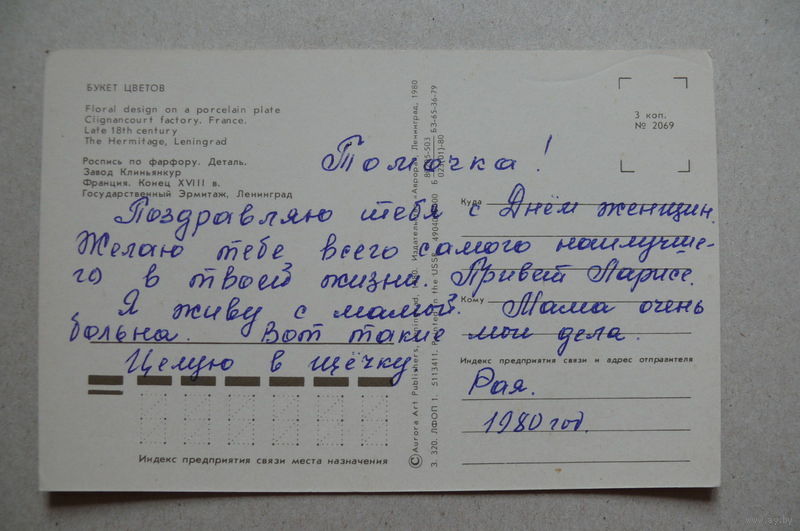 БУКЕТ ЦВЕТОВ
Floral design on a porcelain plate
Clignancourt factory. France.
Late 18th century
The Hermitage, Leningrad
Роспись по фарфору. Деталь.
Завод Клиньянкур
Франция. Конец XVIII в.
Государственный Эрмитаж, Ленинград
3 коп.
№ 2069
Томочка!
Поздравляю тебя с Днём женщин.
Желаю тебе всего самого наилучше-
го в твоей жизни. Привет Ларисе.
Я живу с мамой. Мама очень
больна. Вот такие мои дела.
Целую в щёчку.
Рая.
1980 год.
Куда
Кому
Индекс предприятия связи и адрес отправителя
Индекс предприятия связи места назначения
© Aurora Art Publishers, Printed in the USSR
Издательство «Аврора», Ленинград, 1980
З. 320. ЛФОП 1. 5113411.
БЗ-65-36-79
www.ay.by